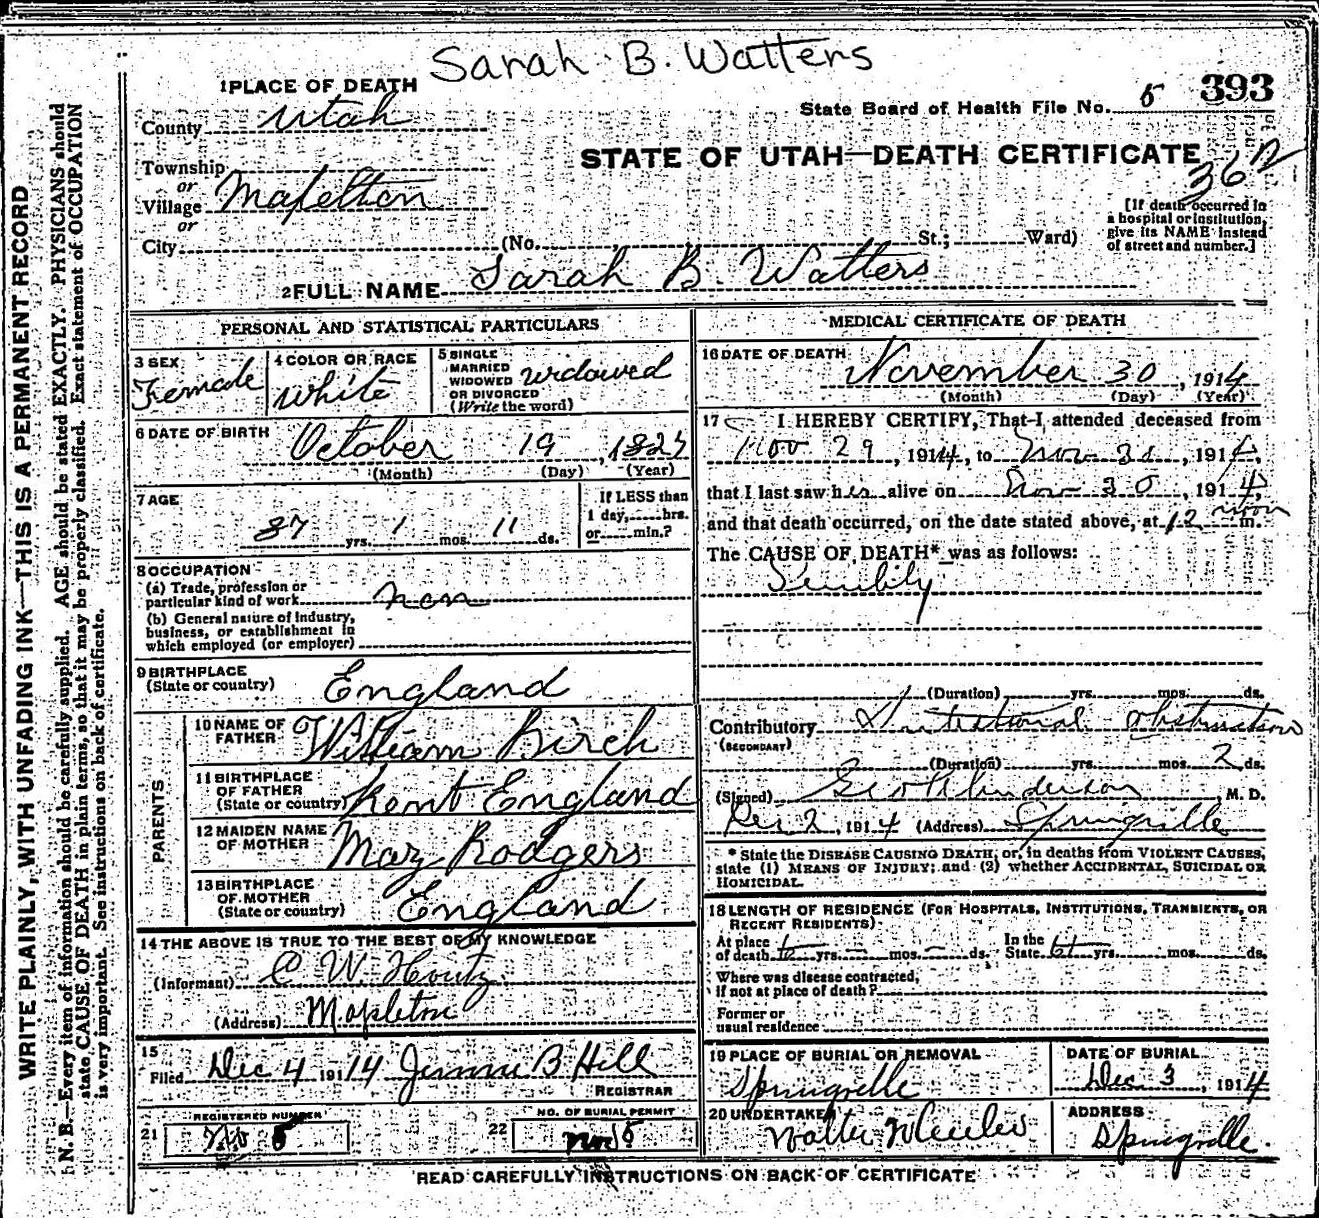 Sarah B. Watters
1 PLACE OF DEATH
393
State Board of Health File No. 5
County Utah
STATE OF UTAH—DEATH CERTIFICATE
Township
or
Village Mapelton
or
City (No. St.; Ward)
[If death occurred in
a hospital or institution,
give its NAME instead
of street and number.]
2 FULL NAME Sarah B. Watters
PERSONAL AND STATISTICAL PARTICULARS
3 SEX
Female
4 COLOR OR RACE
White
5 SINGLE
MARRIED
WIDOWED
OR DIVORCED
(Write the word)
widowed
6 DATE OF BIRTH
October 19, 1827
(Month) (Day) (Year)
7 AGE
87 yrs. 1 mos. 11 ds.
If LESS than
1 day, hrs.
or min.?
8 OCCUPATION
(a) Trade, profession or
particular kind of work non
(b) General nature of industry,
business, or establishment in
which employed (or employer)
9 BIRTHPLACE
(State or country) England
PARENTS
10 NAME OF
FATHER William Birch
11 BIRTHPLACE
OF FATHER
(State or country) Kent England
12 MAIDEN NAME
OF MOTHER Mary Rodgers
13 BIRTHPLACE
OF MOTHER
(State or country) England
14 THE ABOVE IS TRUE TO THE BEST OF MY KNOWLEDGE
(Informant) C W. Houtz
(Address) Mapleton
15
Filed Dec 4 191 14 B Hill
REGISTRAR
REGISTERED NUMBER
21 No 5
NO. OF BURIAL PERMIT
22 No 5
MEDICAL CERTIFICATE OF DEATH
16 DATE OF DEATH
November 30, 1914
(Month) (Day) (Year)
17 I HEREBY CERTIFY, That I attended deceased from
Nov 29, 1914, to Nov 30, 1914,
that I last saw her alive on Nov 30, 1914,
and that death occurred, on the date stated above, at 12 noon m.
The CAUSE OF DEATH* was as follows:
Senility
(Duration) yrs. mos. ds.
Contributory Intestional obstruction
(SECONDARY)
(Duration) yrs. mos. 2 ds.
(Signed) Geo Anderson M. D.
Dec 2, 1914 (Address) Springville
* State the DISEASE CAUSING DEATH, or, in deaths from VIOLENT CAUSES,
state (1) MEANS OF INJURY; and (2) whether ACCIDENTAL, SUICIDAL OR
HOMICIDAL.
18 LENGTH OF RESIDENCE (FOR HOSPITALS, INSTITUTIONS, TRANSIENTS, OR
RECENT RESIDENTS)
At place
of death yrs. - mos. - ds.
In the
State 61 yrs. mos. ds.
Where was disease contracted,
if not at place of death?
Former or
usual residence
19 PLACE OF BURIAL OR REMOVAL
Springville
DATE OF BURIAL
Dec 3, 1914
20 UNDERTAKER
Walter Wheeler
ADDRESS
Springville.
READ CAREFULLY INSTRUCTIONS ON BACK OF CERTIFICATE
WRITE PLAINLY, WITH UNFADING INK—THIS IS A PERMANENT RECORD
N. B.—Every item of information should be carefully supplied. AGE should be stated EXACTLY. PHYSICIANS should
state CAUSE OF DEATH in plain terms, so that it may be properly classified. Exact statement of OCCUPATION
is very important. See instructions on back of certificate.